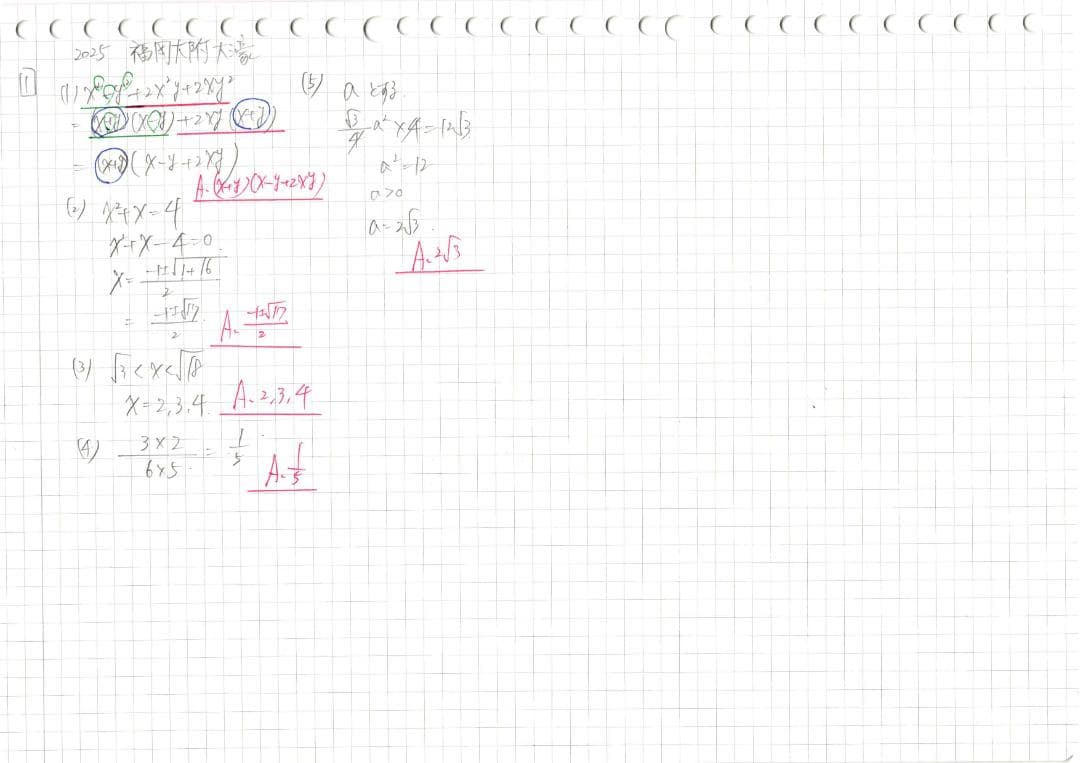 2025 福岡大附大濠
1
(1) x²-y²+2x²y+2xy²
= (x+y)(x-y)+2xy(x+y)
= (x+y)(x-y+2xy)
A. (x+y)(x-y+2xy)
(2) x²+x=4
x²+x-4=0
x= -1±√1+16 / 2
= -1±√17 / 2
A. -1±√17 / 2
(3) √3<x<√18
x=2,3,4.
A. 2,3,4
(4) 3×2 / 6×5 = 1/5
A. 1/5
(5) aとする.
√3/4 a²×4=12√3
a²=12
a>0
a=2√3.
A. 2√3